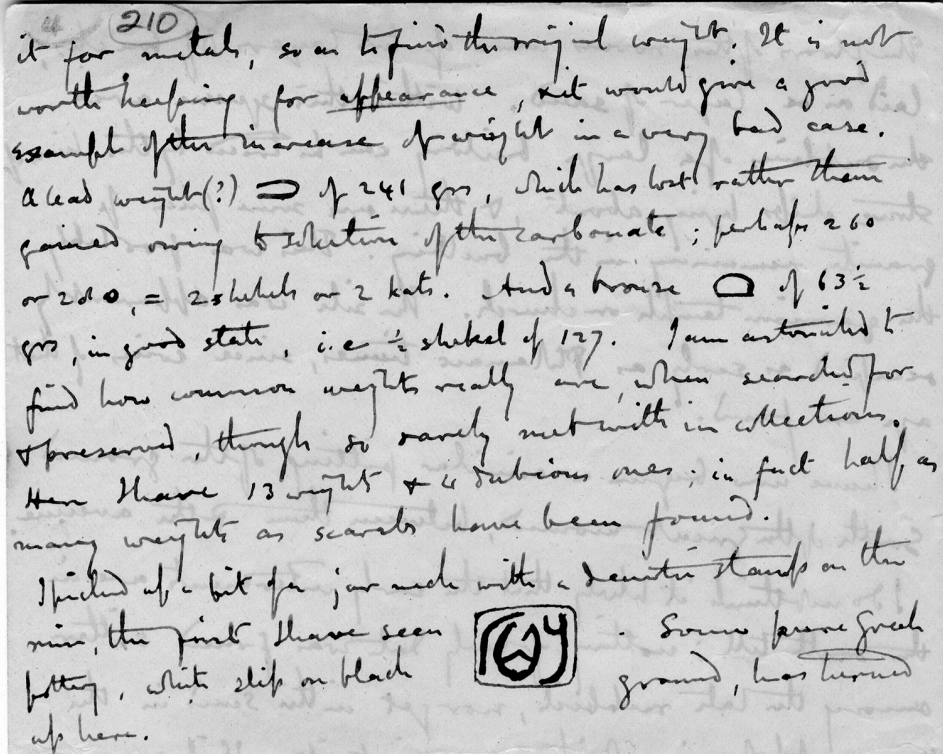 210
it for metals, so as to find the original weight. It is not
worth keeping for appearance, & it would give a good
example of the increase of weight in a very bad case.
A lead weight (?) of 241 grs, which has lost rather than
gained owing to solution of the carbonate; perhaps 260
or 280, = 2 shekels or 2 kats. And a bronze of 63½
grs, in good state, i.e. ½ shekel of 127. I am astonished to
find how common weights really are, when searched for
& preserved, though so rarely met with in collections.
Here I have 13 weights & 4 dubious ones; in fact half as
many weights as scarabs have been found.
I picked up a bit of a jar neck with a Semitic stamp on the
rim, the first I have seen . Some pure Greek
pottery, white slip on black ground, has turned
up here.